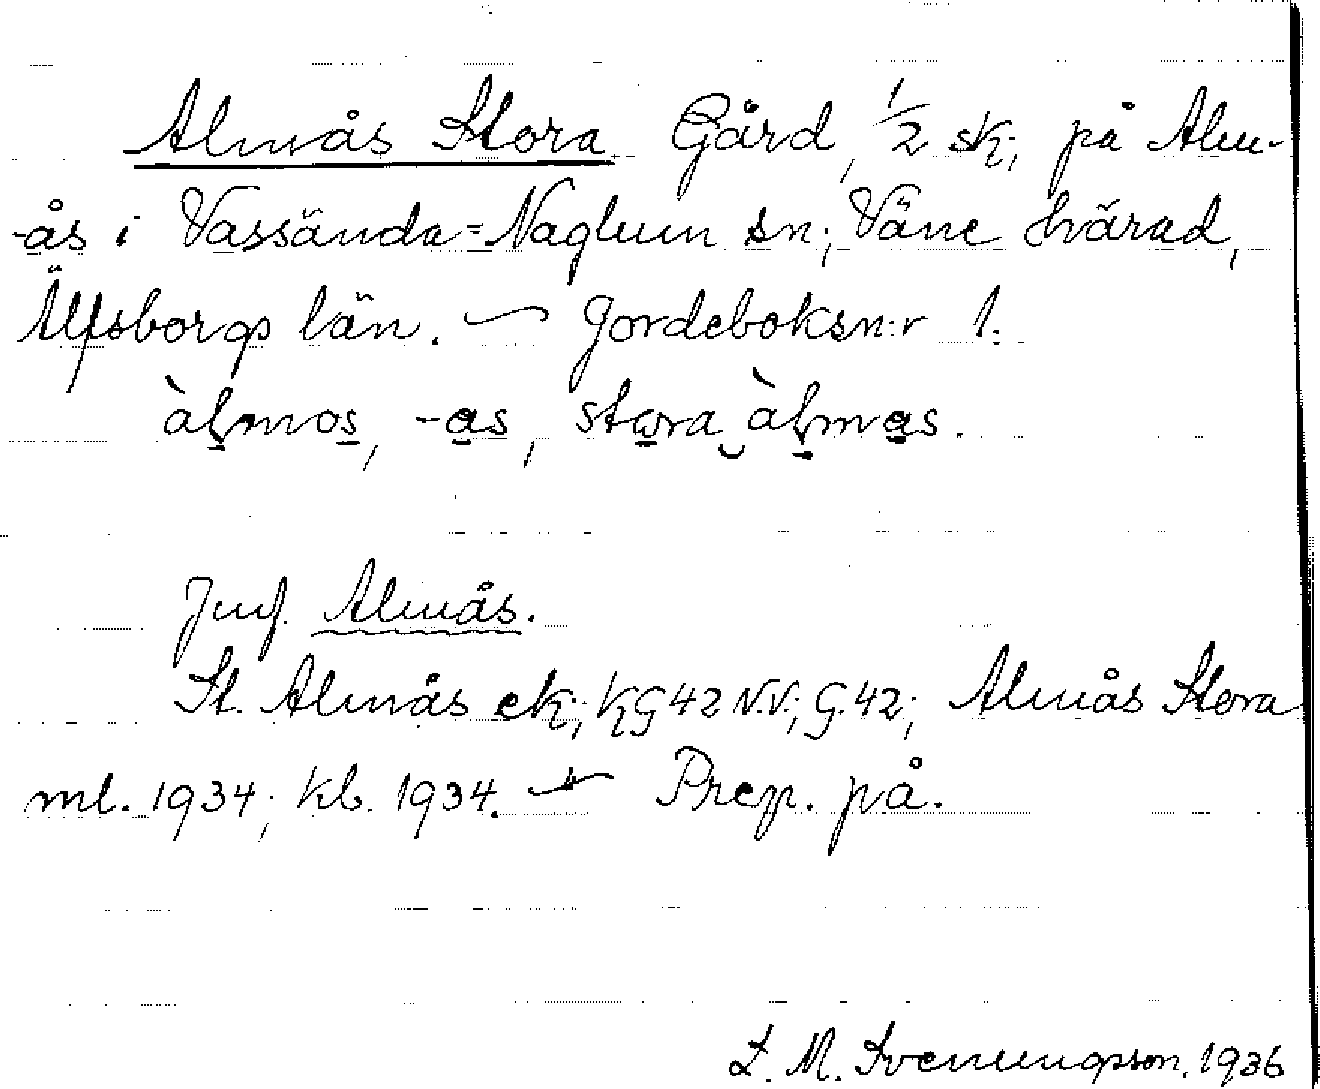 Almås Stora Gård, 1/2 sk., på Alm-
-ås i Vassända=Naglum sn., Väne härad,
Älfsborgs län. — Jordeboksn:r 1.
àl̠mos̠, -a̠s̠, sto̠ra‿àl̠ma̠s.
Jmf. Almås.
St. Almås ek.; KG 42 N.V.; G.42; Almås Stora
ml. 1934; kb. 1934. — Prep. på.
L. M. Svenungsson. 1936